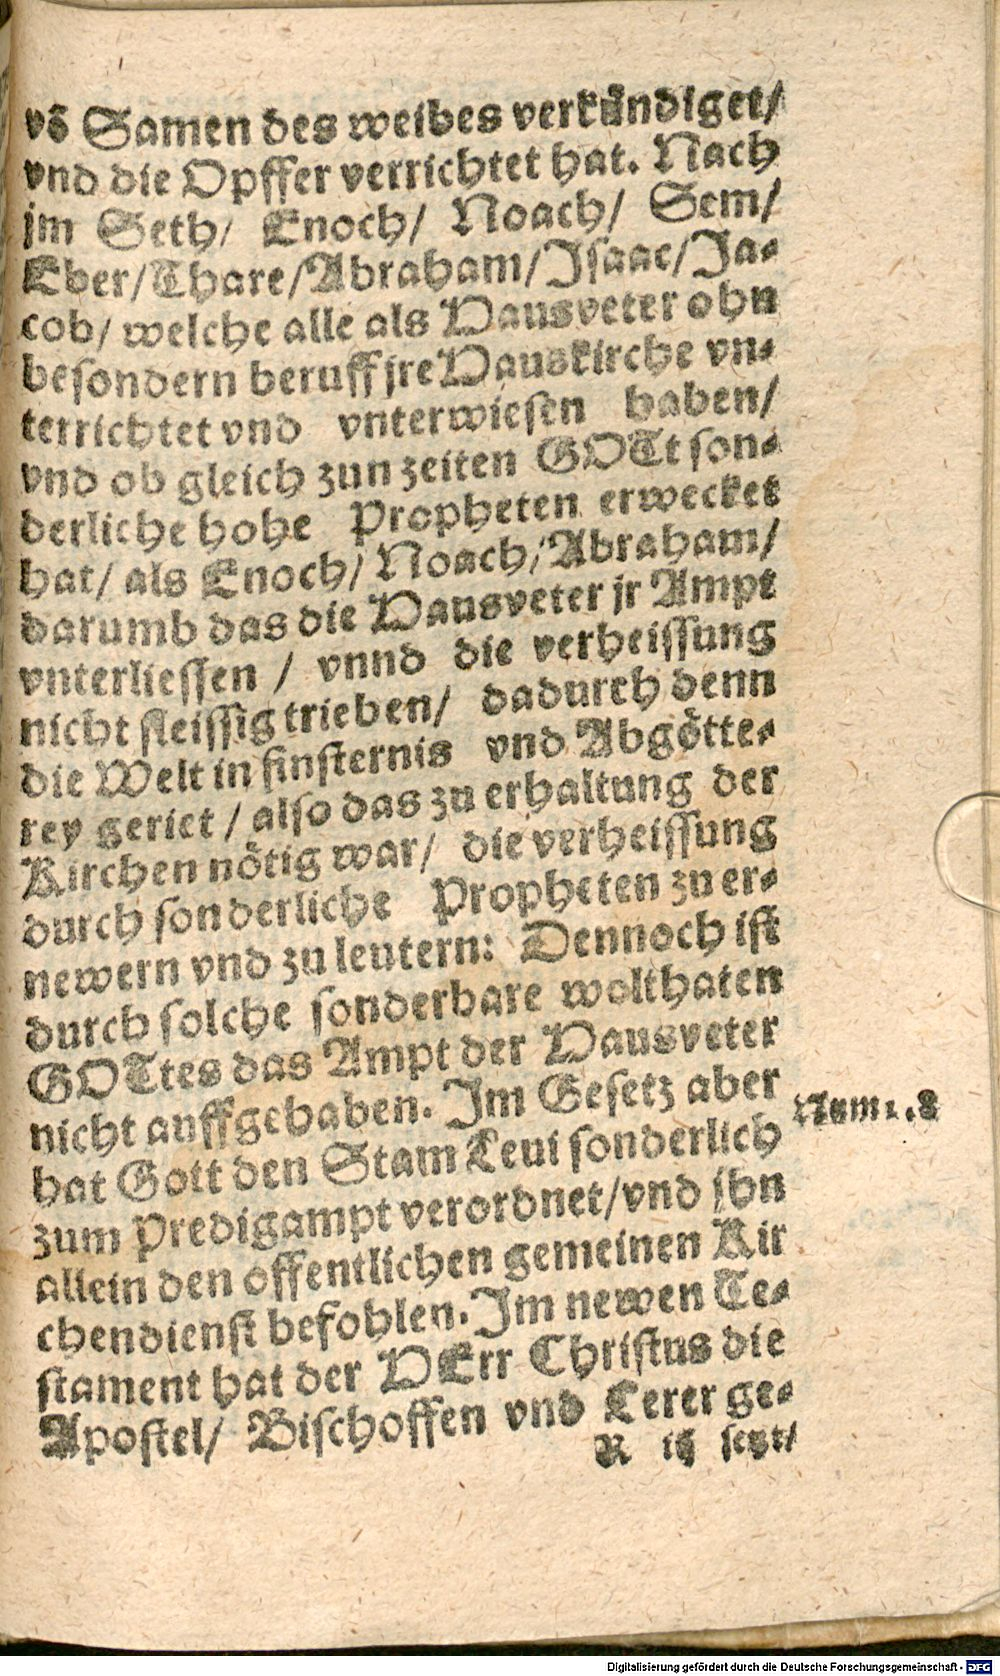 võ Samen des weibes verkündiget/
vnd die Opffer verrichtet hat. Nach
jm Seth/ Enoch/ Noach/ Sem/
Eber/Thare/Abraham/Isaac/Ja-
cob/ welche alle als Hausveter ohn
besondern beruff jre Hauskirche vn-
terrichtet vnd vnterwiesen haben/
vnd ob gleich zun zeiten GOTt son-
derliche hohe Propheten erwecket
hat/ als Enoch/ Noach/ Abraham/
darumb das die Hausveter jr Ampt
vnterliessen / vnnd die verheissung
nicht fleissig trieben/ dadurch denn
die Welt in finsternis vnd Abgötte-
rey geriet / also das zu erhaltung der
Kirchen nötig war/ die verheissung
durch sonderliche Propheten zu er-
newern vnd zu leutern: Dennoch ist
durch solche sonderbare wolthaten
GOTtes das Ampt der Hausveter
nicht auffgehaben. Im Gesetz aber
hat Gott den Stam Leui sonderlich
zum Predigampt verordnet/vnd jhn
allein den offentlichen gemeinen Kir
chendienst befohlen. Im newen Te-
stament hat der HErr Christus die
Apostel/ Bischoffen vnd Lerer ge-
R iij setzt/
Num. 8
Digitalisierung gefördert durch die Deutsche Forschungsgemeinschaft - DFG